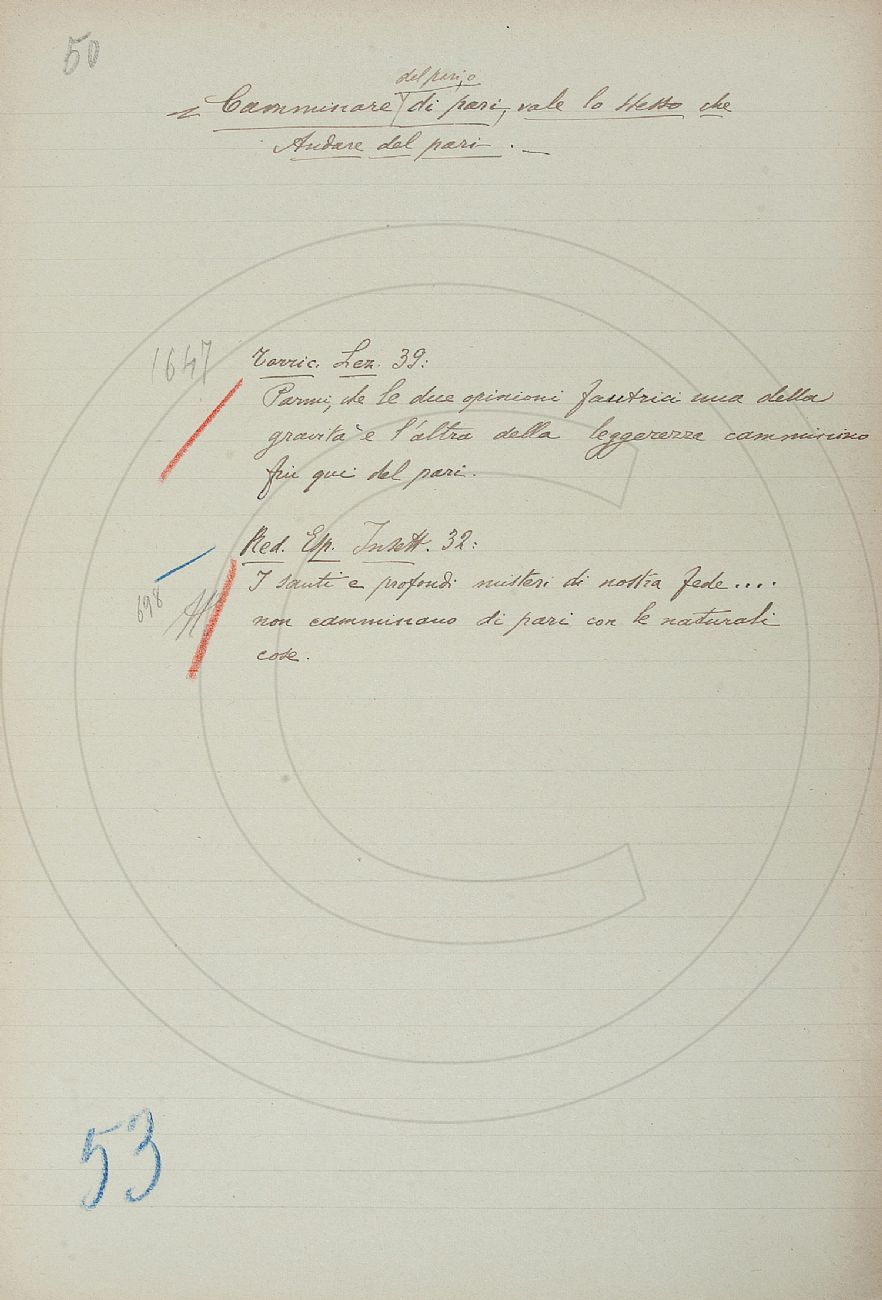 50
del pari, o
Camminare di pari, vale lo stesso che
Andare del pari. —
1647
Torric. Lez. 39:
Parmi, che le due opinioni fautrici una della
gravità e l'altra della leggerezza camminino
fin qui del pari.
Red. Esp. Insett. 32:
I santi e profondi misteri di nostra fede....
698
non camminano di pari con le naturali
cose.
53